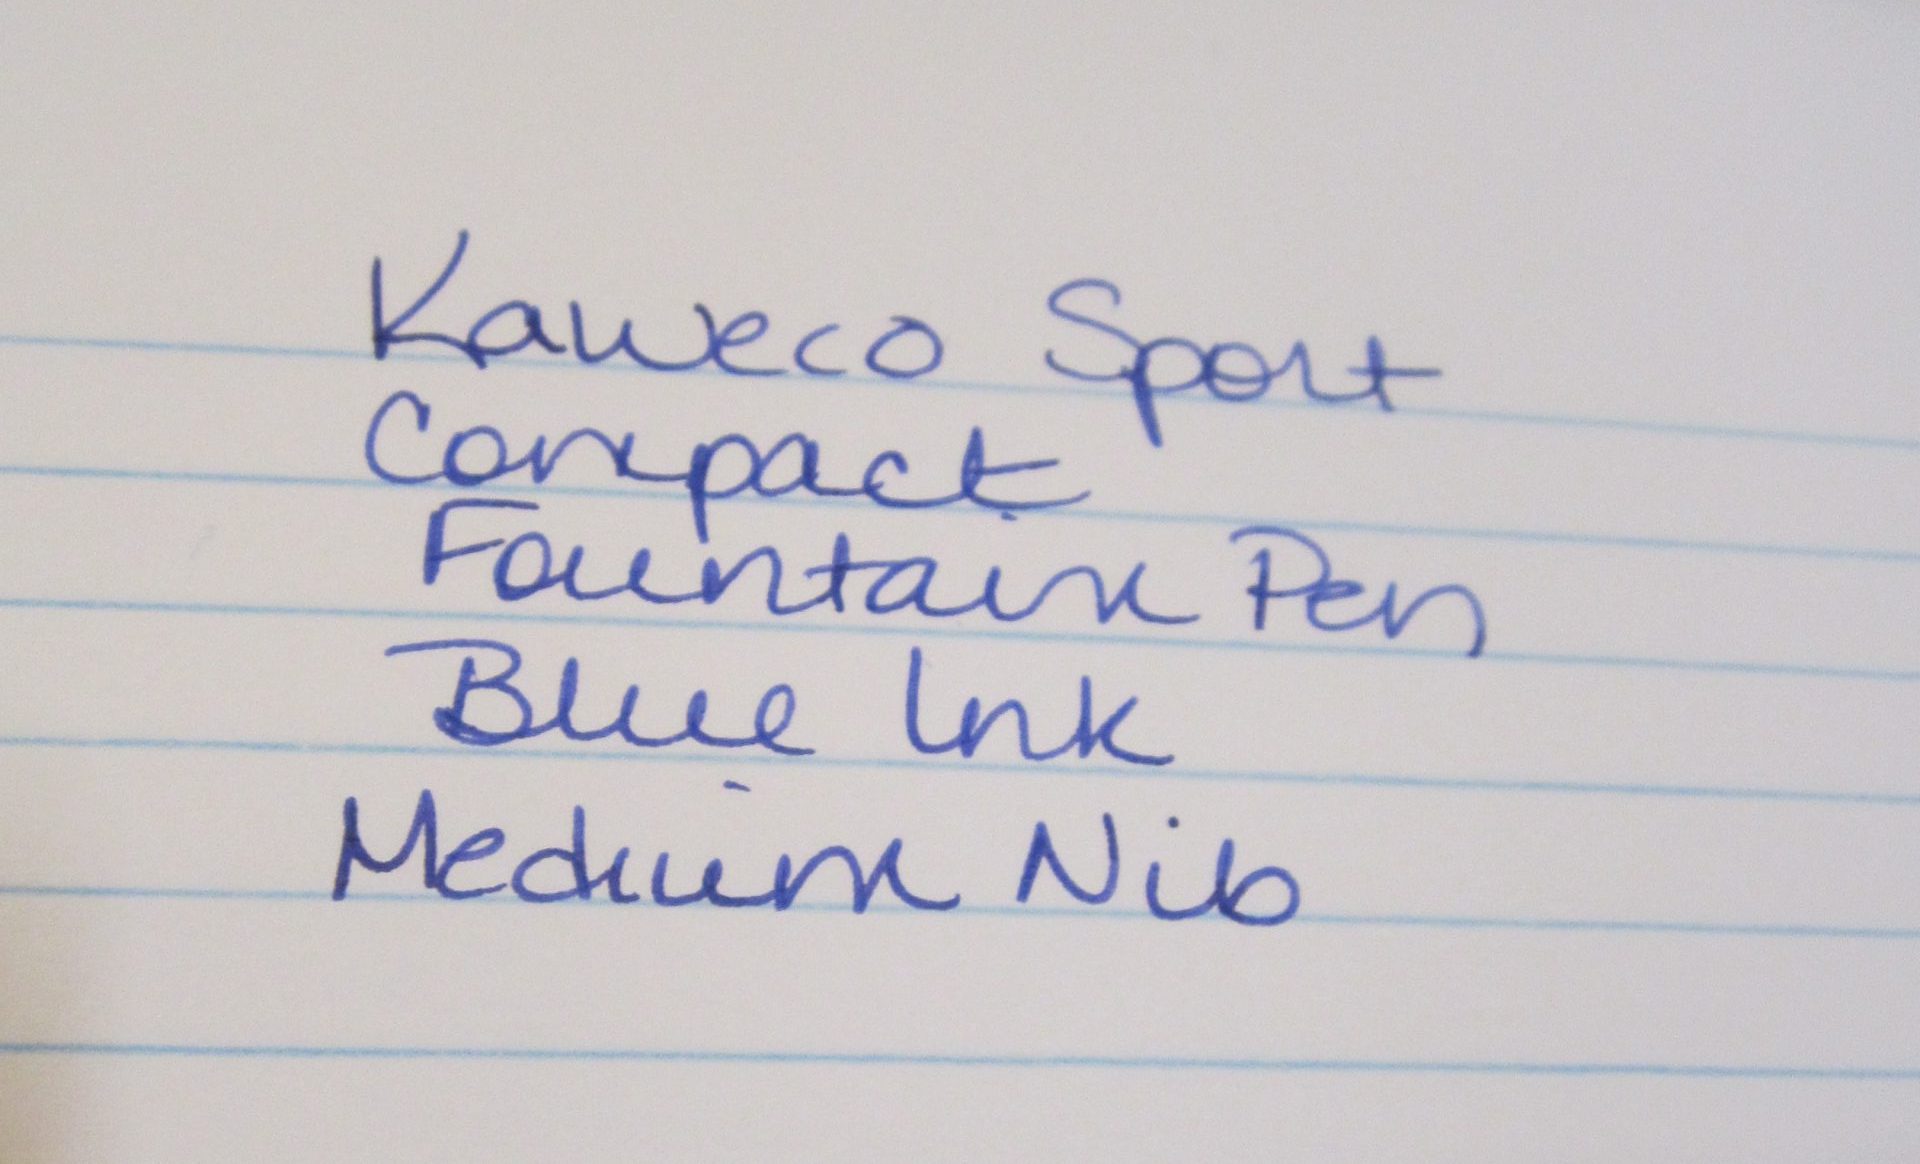 Kaweco Sport
Compact
Fountain Pen
Blue Ink
Medium Nib